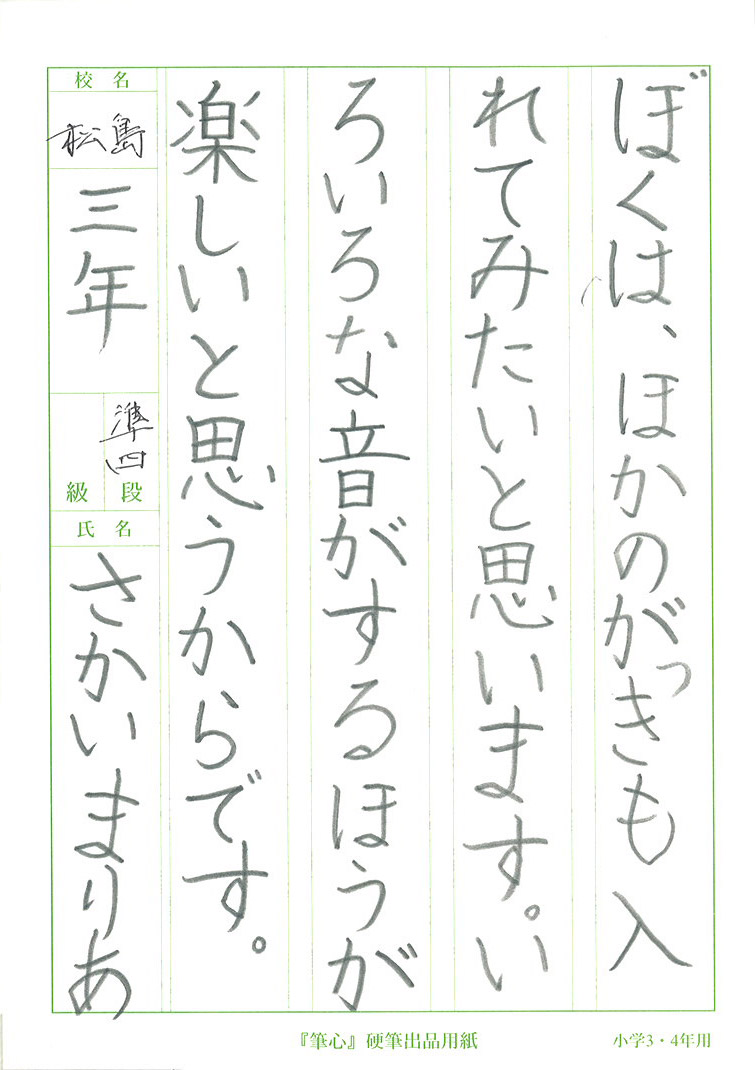 ぼくは、ほかのがっきも入
れてみたいと思います。い
ろいろな音がするほうが
楽しいと思うからです。
校名
松島
三年
準四
級 段
氏名
さかいまりあ
『筆心』硬筆出品用紙
小学3・4年用